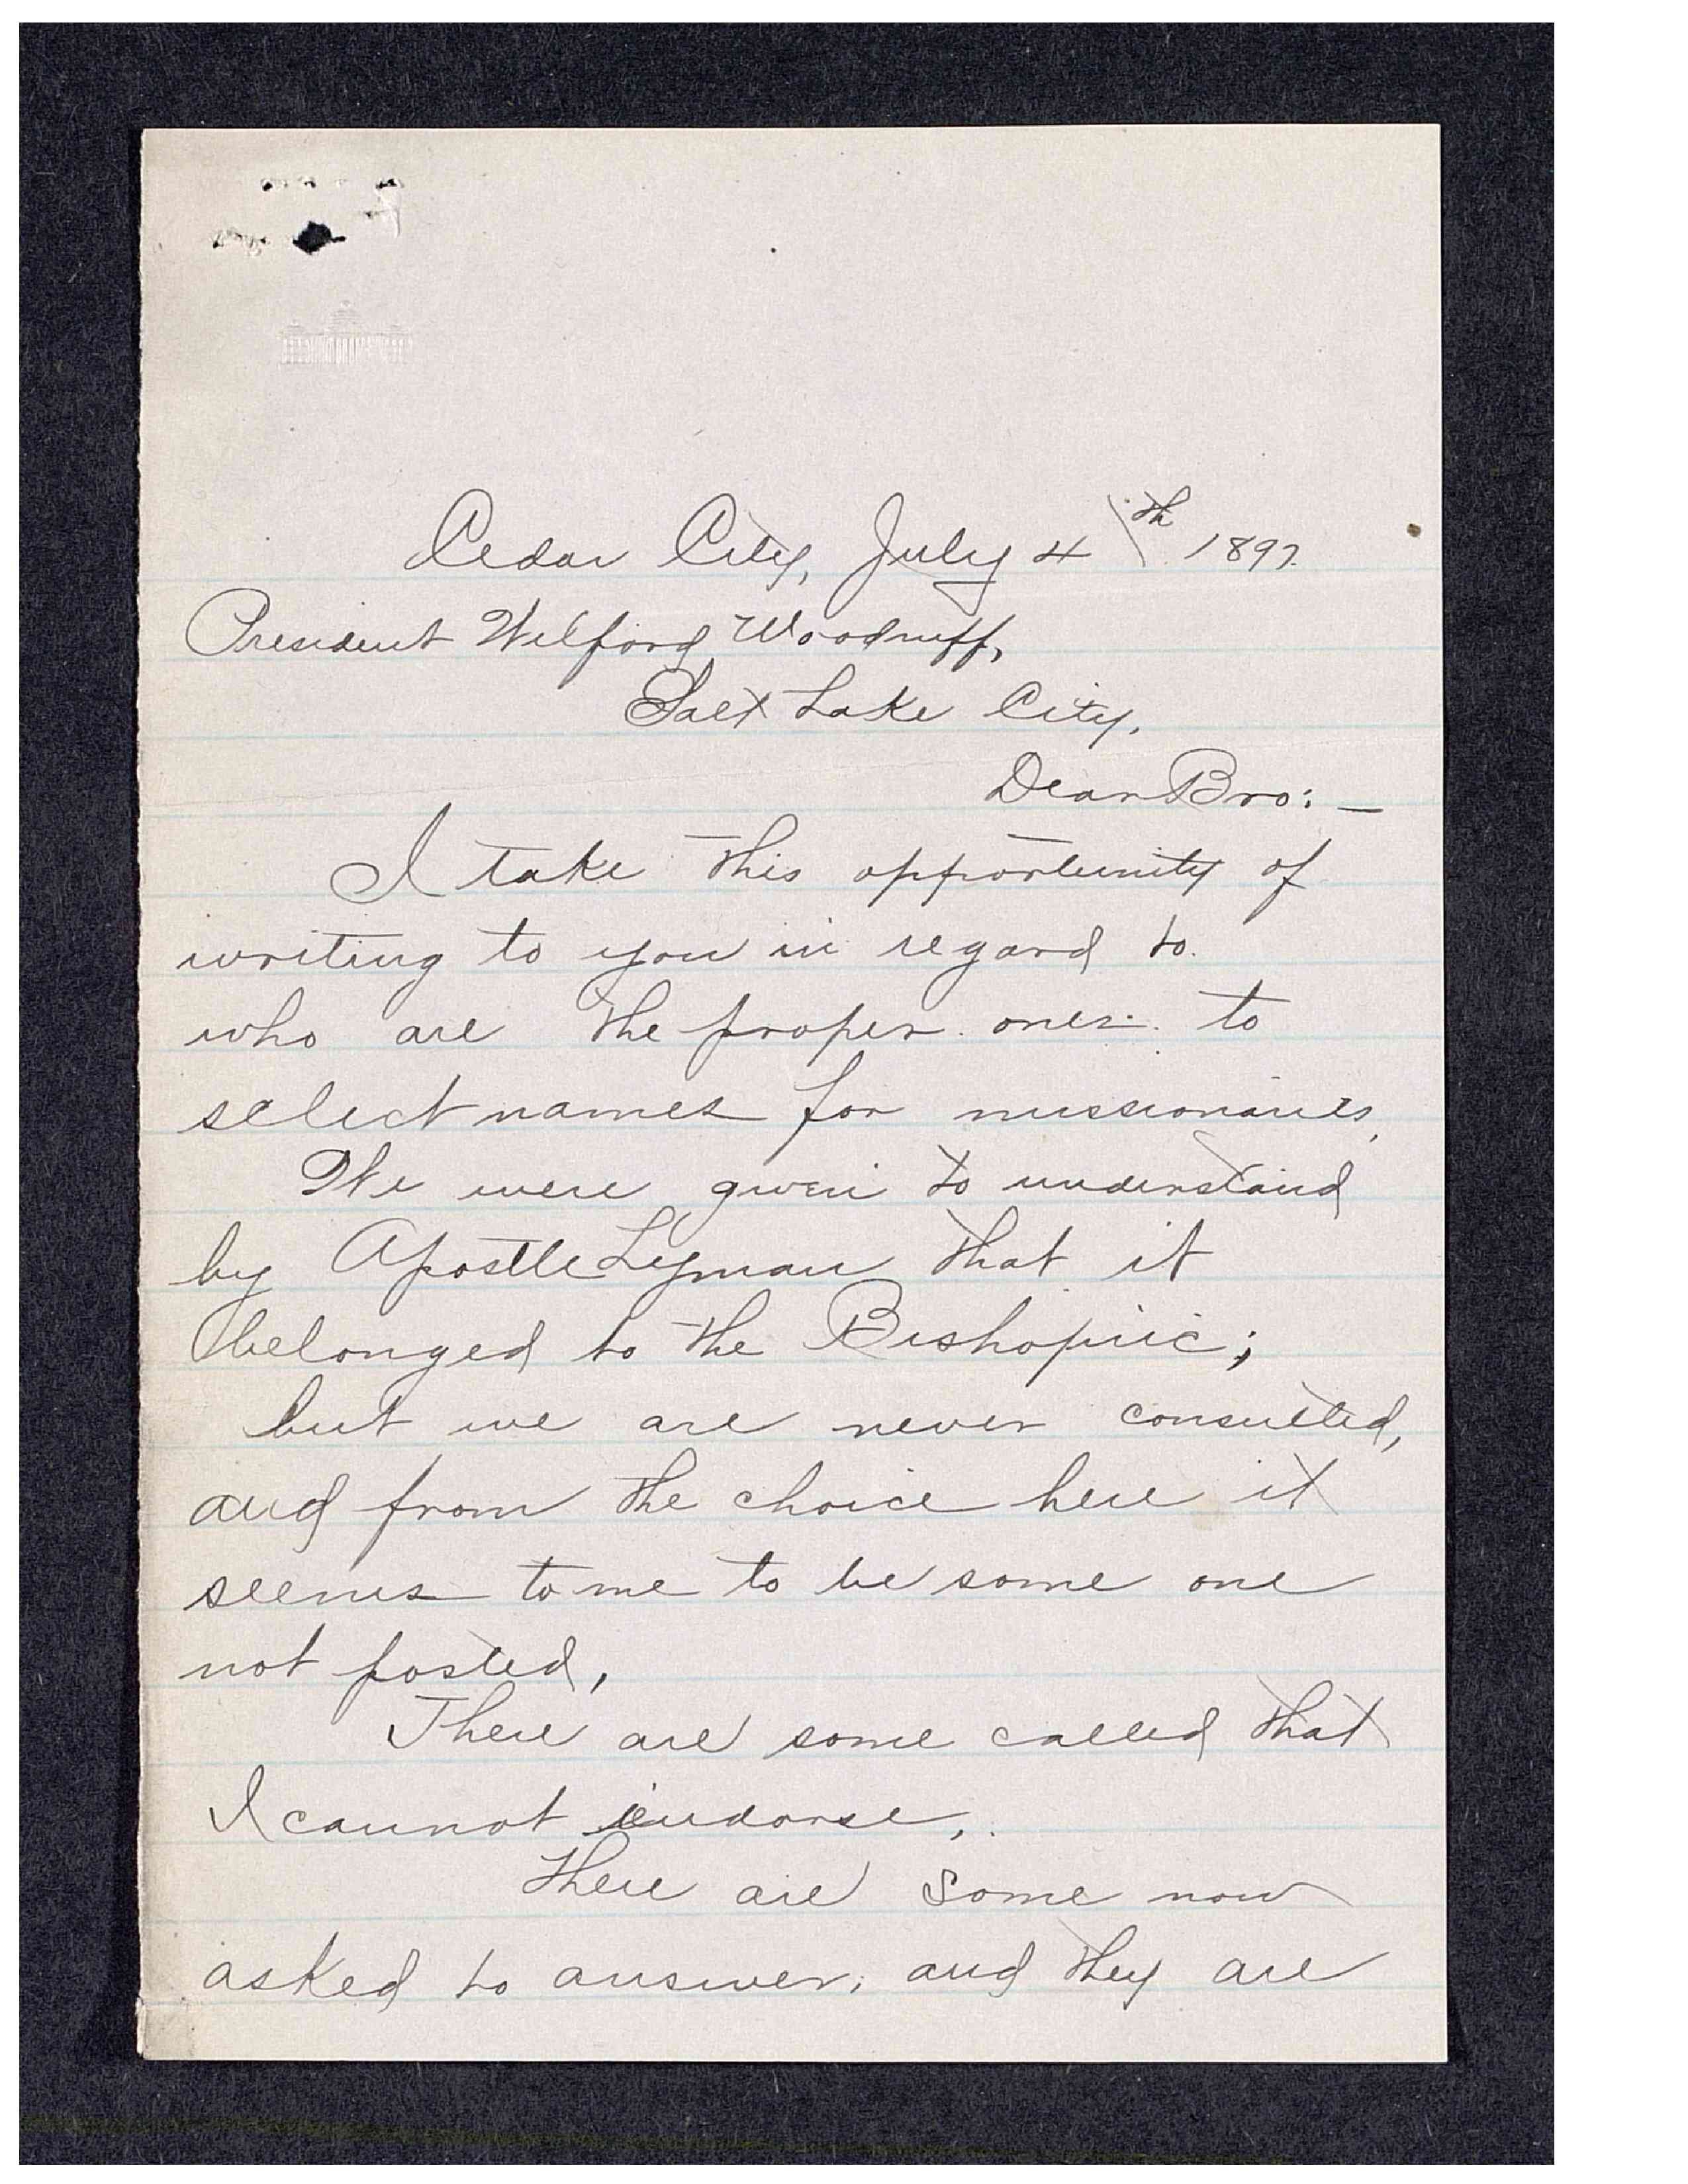 Cedar City, July 4th 1897.
President Wilford Woodruff,
Salt Lake City,
Dear Bro: —
I take this opportunity of
writing to you in regard to
who are the proper ones to
select names for missionaries,
We were given to understand
by Apostle Lyman that it
belonged to the Bishopric;
but we are never consulted,
and from the choice here it
seems to me to be some one
not posted,
There are some called that
I cannot endorse,
there are some now
asked to answer, and they are